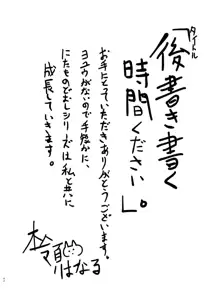 タイトル
「後書き書く
時間ください」。
お手にとっていただきありがとうございます。
ヨユウがないので手短かに、
にたものどおしシリーズは私と共に
成長していきます。
松本
りはなる